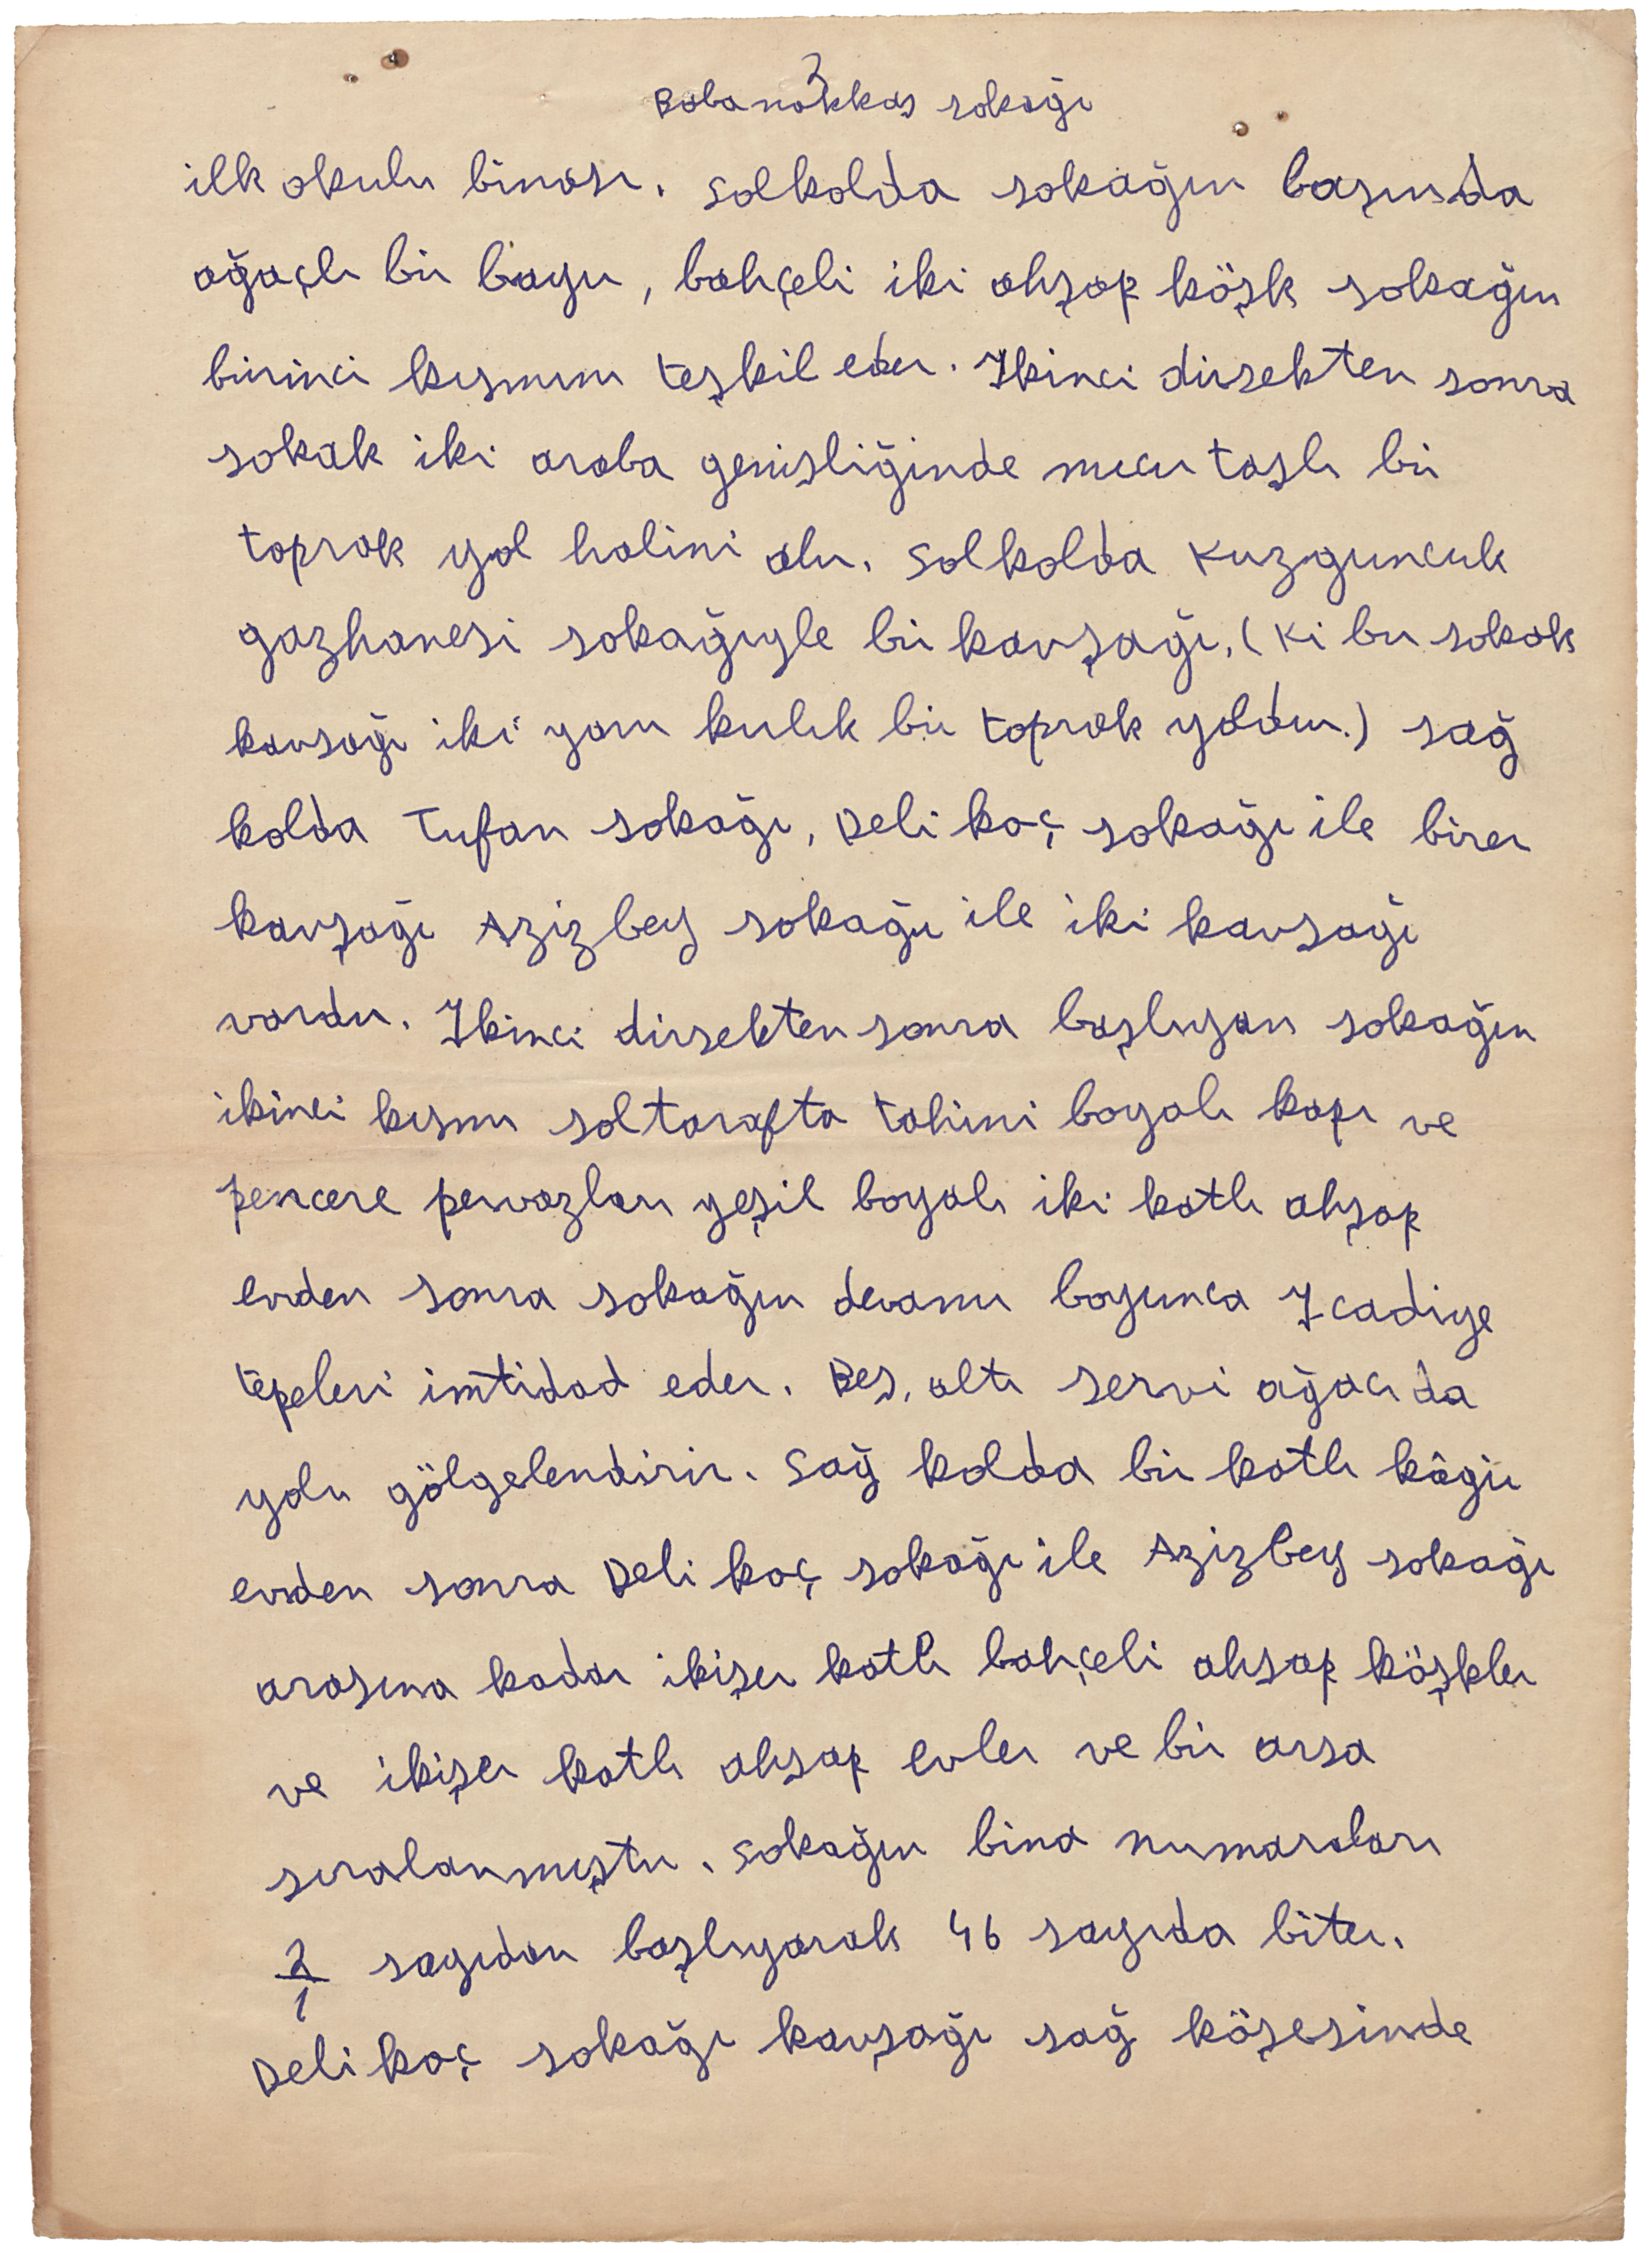 2
Babanakkaş sokağı
ilk okulu binası. Solkolda sokağın başında
ağaçlı bir bayır, bahçeli iki ahşap köşk sokağın
birinci kısmını teşkil eder. İkinci dirsekten sonra
sokak iki araba genişliğinde mıcır taşlı bir
toprak yol halini alır. Solkolda Kuzguncuk
gazhanesi sokağıyle bir kavşağı, (ki bu sokak
kavsağı iki yanı kırlık bir toprak yoldur.) sağ
kolda Tufan sokağı, Deli koç sokağı ile birer
kavşağı Azizbey sokağı ile iki kavsağı
vardır. İkinci dirsekten sonra başlıyan sokağın
ikinci kısmı sol tarafta tahini boyalı kapı ve
pencere pervazları yeşil boyalı iki katlı ahşap
evden sonra sokağın devamı boyunca İcadiye
tepeleri imtidad eder. Beş, altı servi ağacıda
yolu gölgelendirir. Sağ kolda bir katlı kâgir
evden sonra Deli koç sokağı ile Azizbey sokağı
arasına kadar ikişer katlı bahçeli ahşap köşkler
ve ikişer katlı ahşap evler ve bir arsa
sıralanmıştır. Sokağın bina numaraları
2/1 sayıdan başlıyarak 46 sayıda biter.
Deli koç sokağı kavşağı sağ köşesinde